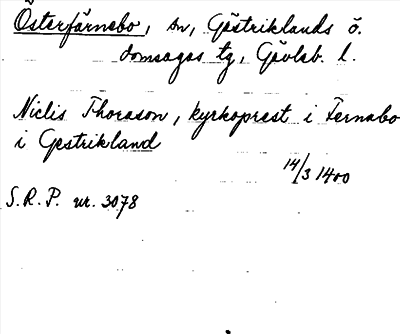 Österfärnebo, sn, Gästriklands ö.
domsagas tg, Gävleb. l.
Niclis Thorason, kyrkoprest i Fernabo
i Gestrikland
14/3 1400
S.R.P. nr. 3078